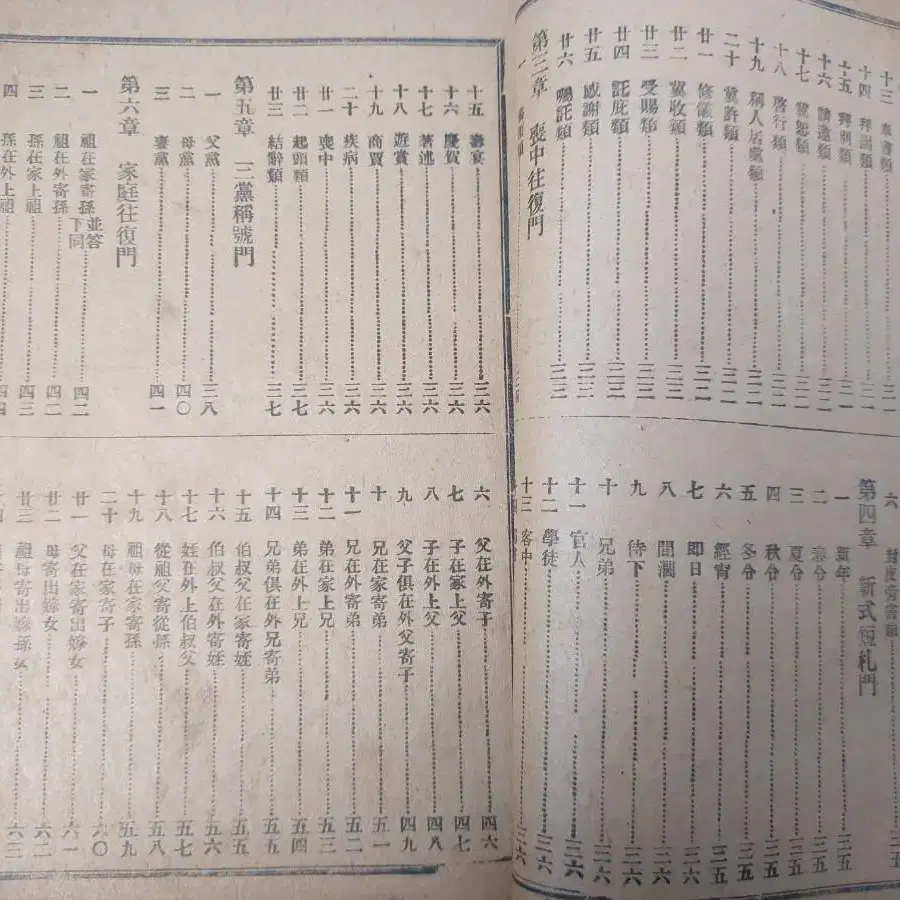 十四 拜謁類 三一
十五 拜別類 三一
十六 請邀類 三一
十七 冀恕類 三一
十八 啓行類 三一
十九 稱人居處類 三二
二十 冀許類 三二
廿一 修儀類 三二
廿二 冀收類 三二
廿三 受賜類 三二
廿四 託庇類 三三
廿五 感謝類 三三
廿六 囑託類 三三
第三章 喪中往復門
六 封皮旁書類 三五
第四章 新式短札門
一 新年 三五
二 春分 三五
三 夏分 三五
四 秋分 三五
五 冬分 三五
六 經宵 三五
七 卽日 三六
八 間濶 三六
九 侍下 三六
十 兄弟 三六
十一 官人 三六
十二 學徒 三六
十三 客中 三六
十五 壽宴 三六
十六 慶賀 三六
十七 著述 三六
十八 遊賞 三六
十九 商賈 三六
二十 疾病 三六
廿一 喪中 三六
廿二 起頭類 三七
廿三 結辭類 三七
第五章 三黨稱號門
一 父黨 三八
二 母黨 四〇
三 妻黨 四一
第六章 家庭往復門
一 祖在家寄孫 並答下同 四二
二 祖在外寄孫 四二
三 孫在家上祖 四三
四 孫在外上祖 四四
六 父在外寄子 四六
七 子在家上父 四七
八 子在外上父 四八
九 父子俱在外父寄子 四九
十 兄在家寄弟 五一
十一 兄在外寄弟 五二
十二 弟在家上兄 五三
十三 弟在外上兄 五四
十四 兄弟俱在外兄寄弟 五五
十五 伯叔父在家寄姪 五五
十六 伯叔父在外寄姪 五六
十七 姪在外上伯叔父 五七
十八 從祖父寄從孫 五八
十九 祖母在家寄孫 五九
二十 母在家寄子 六〇
廿一 父在家寄出嫁女 六一
廿二 母寄出嫁女 六二
廿三 祖母寄出嫁孫女 六三